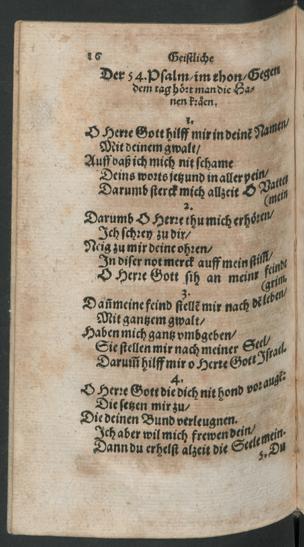 16 Geistliche
Der 54. Psalm / im thon / Gegen
dem tag hört man die Ha-
nen kräen.
1.
O Herre Gott hilff mir in deinē Namen /
Mit deinem gwalt /
Auff daß ich mich nit schame
Deins worts jetzund in aller pein /
Darumb sterck mich allzeit O Vatter
(mein
2.
Darumb O Herre thu mich erhören /
Ich schrey zu dir /
Neig zu mir deine ohren /
In diser not merck auff mein stim /
O Herre Gott sih an meine feinde
(grim.
3.
Dañ meine feind stellē mir nach dē leben /
Mit gantzem gwalt /
Haben mich gantz vmbgeben /
Sie stellen mir nach meiner Seel /
Darum̄ hilff mir o Herre Gott Israel.
4.
O Herre Gott die dich nit hond vor augē:
Die setzen mir zu /
Die deinen Bund verleugnen.
Ich aber wil mich frewen dein /
Dann du erhelst alzeit die Seele mein.
5. Du